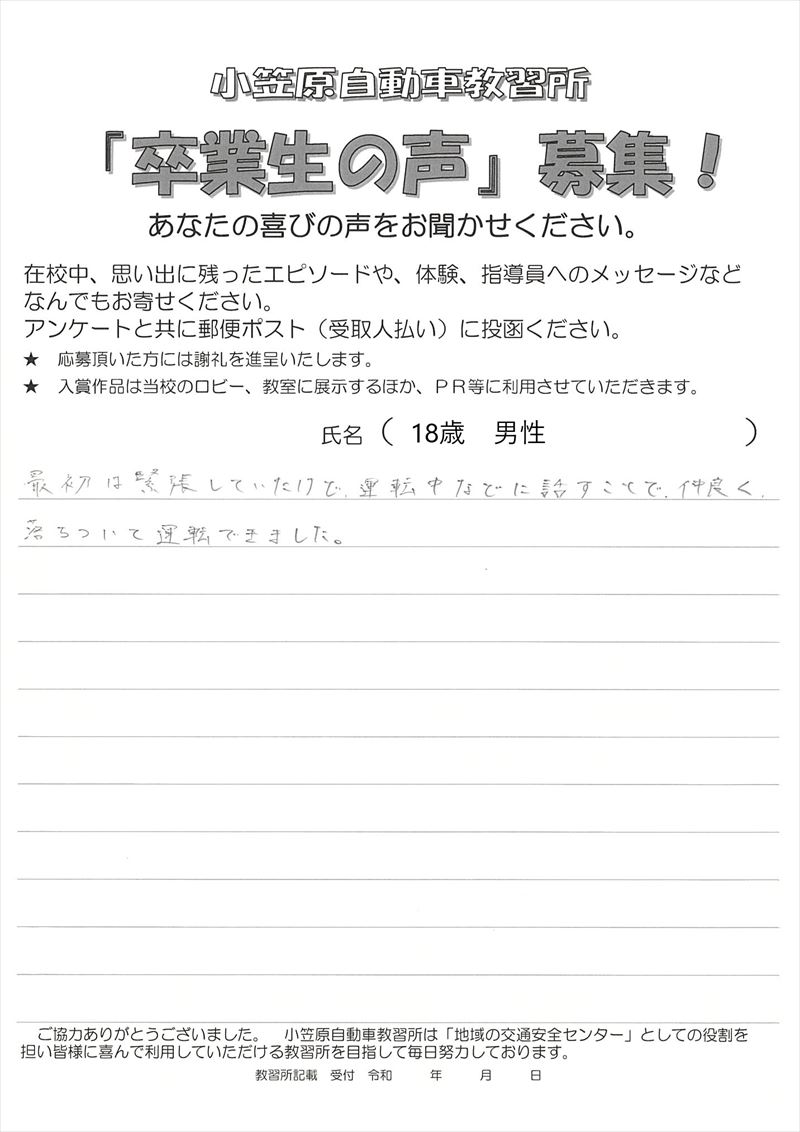 小笠原自動車教習所
『卒業生の声』募集！
あなたの喜びの声をお聞かせください。
在校中、思い出に残ったエピソードや、体験、指導員へのメッセージなど
なんでもお寄せください。
アンケートと共に郵便ポスト（受取人払い）に投函ください。
★　応募頂いた方には謝礼を進呈いたします。
★　入賞作品は当校のロビー、教室に展示するほか、ＰＲ等に利用させていただきます。
氏名（　18歳　男性　）
最初は緊張していたけど、運転中などに話すことで、仲良く、
落ちついて運転できました。
ご協力ありがとうございました。　小笠原自動車教習所は「地域の交通安全センター」としての役割を
担い皆様に喜んで利用していただける教習所を目指して毎日努力しております。
教習所記載　受付　令和　　年　　月　　日